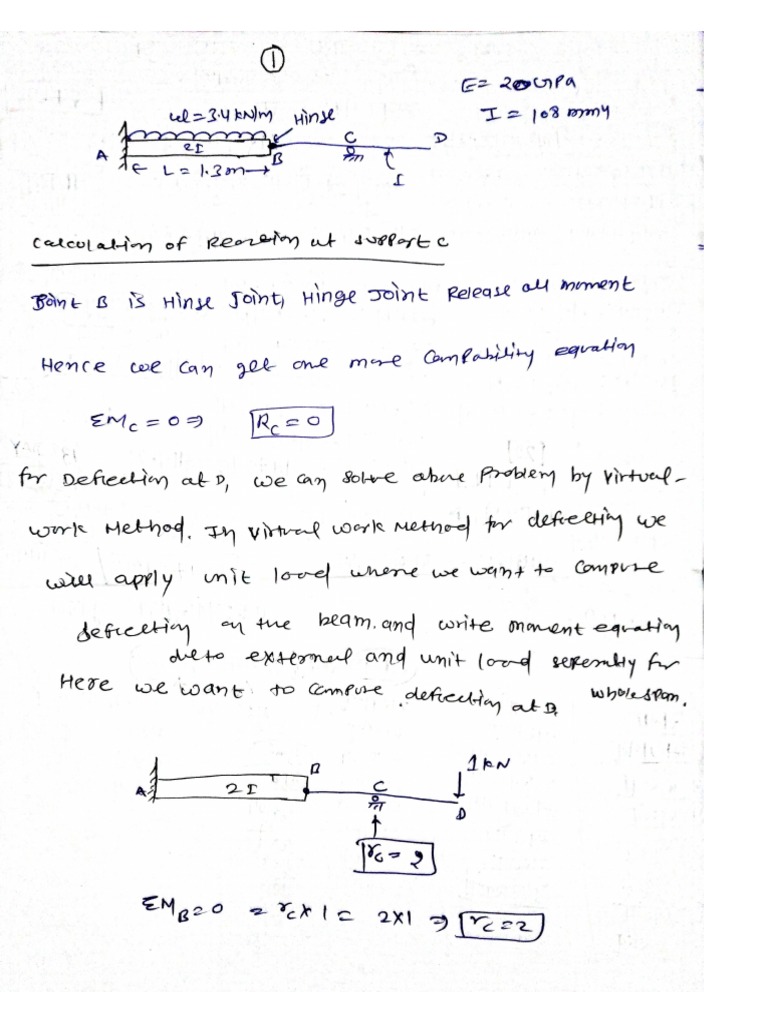 1
E= 200GPa
I = 108 mm4
wl=3.4kN/m Hinse
A 2I B C D
L = 1.3m
I
Calculation of Reaction at support C
Point B is Hinse Joint, Hinge Joint Release all moment
Hence we can get one more Compability equation
ΣMc = 0 ⇒ Rc = 0
for Deflection at D, we can solve above Problem by virtual-
work Method. In virtual work Method for deflection we
will apply unit load where we want to Compute
deflection on the beam. and write moment equation
due to external and unit load seperatly for
Here we want to compute deflection at D. whole span.
A 2I B C D 1kN
rc = 2
ΣMB=0 = rc x 1 = 2x1 ⇒ rc=2